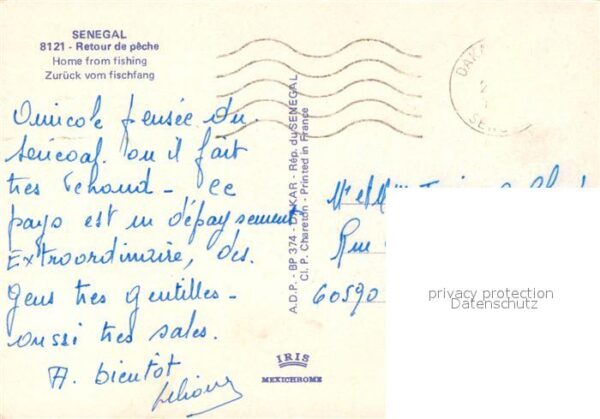 SENEGAL
8121 - Retour de pêche
Home from fishing
Zurück vom fischfang
DAKA
Amicale pensée du
Sénégal ou il fait
très chaud - ce
pays est un dépaysement
Extraordinaire, des
gens très gentilles -
aussi très sales.
A. bientôt
A.D.P. - BP 374 - DAKAR - Rép. du SENEGAL
Cl. P. Chareton - Printed in France
Mr et Mme
Rue
60590
privacy protection
Datenschutz
IRIS
MEXICHROME